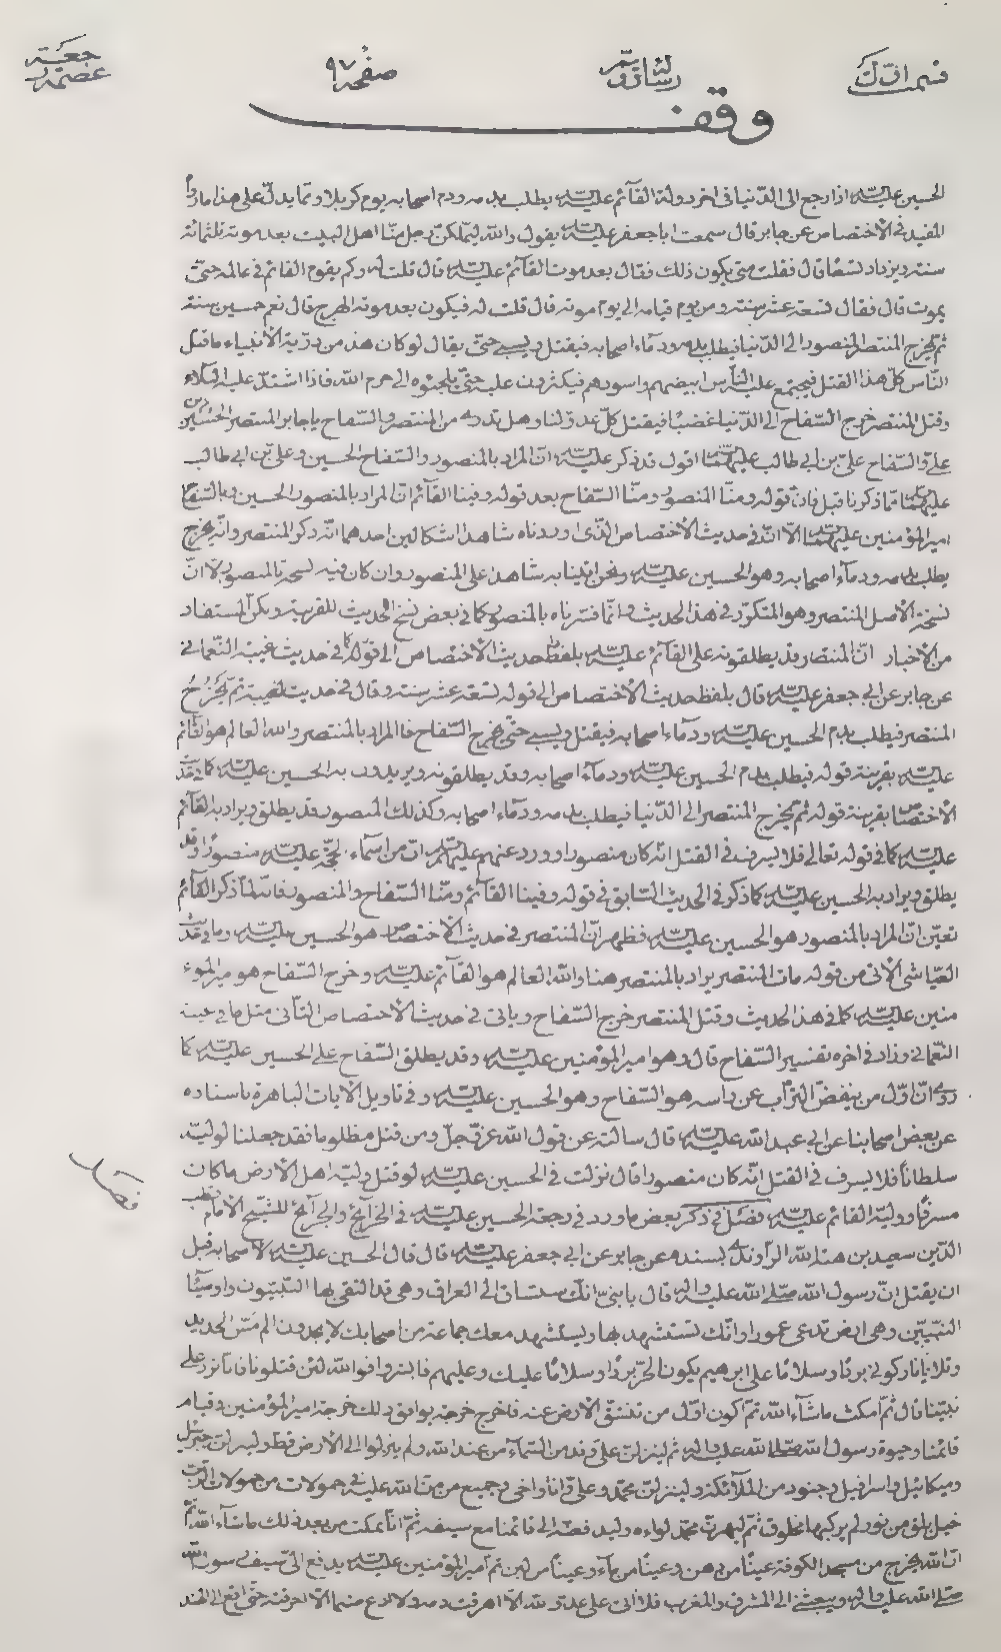 قسمت اوّل رسالۀ دویّم صفحۀ ٩٧ رجعیّة عصمتیّه
وقف
الحسين عليه السّلم اذا رجع الى الدّنيا فى اخر دولة القآئم عليه السّلم يطلب بدمه ودم اصحابه يوم كربلا وممّا يدلّ على هذا مارواه
المفيد فى الاختصاص عن جابر قال سمعت اباجعفر عليه السّلم يقول والله ليملكنّ رجل منّا اهل البيت بعد موته ثلثمائة
سنة ويزداد تسعًا قال فقلت متى يكون ذلك فقال بعد موت القآئم عليه السّلم قال قلت له وكم يقوم القائم فى عالمه حتّى
يموت قال فقال تسعة عشر سنة ومن يوم قيامه الى يوم موته قال قلت له فيكون بعد موته الهرج قال نعم خمسين سنة
ثمّ يخرج المنتصر المنصور الى الدّنيا فيطلب بدمه ودمآء اصحابه فيقتل ويسبي حتّى يقال لوكان هذ من ذرّية الأنبياء ماقتل
النّاس كلّ هذا القتل فيجتمع عليه النّاس ابيضهم واسودهم فيكثرون عليه حتّى يلجئوه الى حرم الله فاذا اشتدّ عليه البلاء
وقتل المنتصر خرج السّفاح الى الدّنيا غضبًا فيقتل كلّ عدوّ لنا وهل تدرى من المنتصر والسّفاح ياجابر المنتصر الحسين بن
علىّ والسّفاح علىّ بن ابى طالب عليهما السّلم اقول قد ذكر عليه السّلم انّ المراد بالمنصور والسّفاح الحسين وعلىّ بن ابى طالب
عليهما السّلم كما ذكرنا قبل فانّ قوله ومنّا المنصور ومنّا السّفاح بعد قوله وفينا القآئم انّ المراد بالمنصور الحسين وبالسّفاح
اميرالمؤمنين عليهما السّلم الّا انّ فى حديث الاختصاص الّذى اوردناه شاهدا اشكالين احدهما انّه ذكر المنتصر وانّه يخرج
يطلب بدمه ودمآء اصحابه وهو الحسين عليه السّلم ونحن اتينا به شاهدا على المنصور وان كان فيه نسخة بالمنصور الّا انّ
نسخة الأصل المنتصر وهو المتكرّر فى هذ الحديث وانّما فسّرناه بالمنصور كما فى بعض نسخ الحديث للقرينة ولكن المستفاد
من الأخبار انّ المنتصر قد يطلقونه على القآئم عليه السّلم بلفظ حديث الاختصاص الى قوله كما فى حديث غيبة النّعمانى
عن جابر عن ابى جعفر عليه السّلم قال بلفظ حديث الاختصاص الى قوله تسعة عشر سنة وقال فى حديث الغيبة ثمّ يخرج
المنتصر فيطلب بدم الحسين عليه السّلم ودمآء اصحابه فيقتل ويسبي حتّى يخرج السّفاح فالمراد بالمنتصر والله العالم هو القآئم
عليه السّلم بقرينة قوله فيطلب بدم الحسين عليه السّلم ودمآء اصحابه وقد يطلقونه ويريدون به الحسين عليه السّلم كما فى حديث
الاختصاص بقرينة قوله ثمّ يخرج المنتصر الى الدّنيا فيطلب بدمه ودمآء اصحابه وكذلك المنصور قد يطلق ويراد به القآئم
عليه السّلم كما فى قوله تعالى فلا يسرف فى القتل انّه كان منصورا وورد عنهم عليهم السّلم انّ من اسمآء الحجّة عليه السّلم منصورًا وقد
يطلق ويراد به الحسين عليه السّلم كما ذكر فى الحديث السّابق فى قوله وفينا القآئم ومنّا السّفاح والمنصور فانّه لمّا ذكر القآئم
تعيّن انّ المراد بالمنصور هو الحسين عليه السّلم فظهر انّ المنتصر فى حديث الاختصاص هو الحسين عليه السّلم وما فى حديث
العيّاشى الآتى من قوله مات المنتصر يراد بالمنتصر هنا والله العالم هو القآئم عليه السّلم وخرج السّفاح هو اميرالمؤ
منين عليه السّلم كما فى هذ الحديث وقتل المنتصر خرج السّفاح وياتى فى حديث الاختصاص الثّانى مثل ما فى غيبة
النّعمانى وزاد فى اخره تفسير السّفاح قال وهو اميرالمؤمنين عليه السّلم وقد يطلق السّفاح على الحسين عليه السّلم كما
روى انّ اوّل من ينفض التراب عن راسه هو السّفاح وهو الحسين عليه السّلم وفى تاويل الايات الباهرة باسناده
عن بعض اصحابنا عن ابى عبدالله عليه السّلم قال سالته عن قول الله عزّوجلّ ومن قتل مظلوما فقد جعلنا لوليّه
سلطانًا فلا يسرف فى القتل انّه كان منصورا قال نزلت فى الحسين عليه السّلم لو قتل وليّه اهل الأرض ماكان
مسرفًا ووليّه القائم عليه السّلم فصل فى ذكر بعض ماورد فى رجعة الحسين عليه السّلم فى الخرآئج والجرآئح للشّيخ الامام قطب
الدّين سعيد بن هبة الله الرّاوندى بسنده عن جابر عن ابى جعفر عليه السّلم قال قال الحسين عليه السّلم لأصحابه قبل
ان يقتل انّ رسول الله صلّى الله عليه واله قال يابنىّ انّك ستساق الى العراق وهى قد التقى بها النّبيّون واوصيآء
النّبيّين وهى ارض تدعى عمورا وانّك تستشهد بها ويستشهد معك جماعة من اصحابك لا يجدون الم مسّ الحديد
وتلا يانار كونى بردًا وسلامًا على ابرهيم يكون الحرّ بردًا وسلامًا عليك وعليهم فابشروا فوالله لئن قتلونا فانّا نرد على
نبيّنا قال ثمّ امكث ماشآء الله ثمّ اكون اوّل من تنشقّ الأرض عنه فاخرج خرجة يوافق ذلك خرجة اميرالمؤمنين وقيام
قائمنا وحيوة رسول الله صلّى الله عليه واله ثم لينزلنّ علىّ وفد من السّمآء من عندالله ولم ينزلوا الى الأرض قطّ ولينزلنّ جبرئيل
وميكائيل واسرافيل وجنود من الملآئكة ولينزلنّ محمّد وعلىّ وانا واخى وجميع من منّ الله عليه فى حمولات من حمولات الرّب
خيل بلق من نور لم يركبها مخلوق ثمّ ليهزّنّ محمّد لواءه وليدفعنّه الى قائمنا مع سيفه ثمّ انّا نمكث من بعد ذلك ماشآء الله ثمّ
انّ الله يخرج من مسجد الكوفة عينًا من دهن وعينًا من مآء وعينًا من لبن ثم اميرالمؤمنين عليه السّلم يدفع الىّ سيف رسول الله
صلّى الله عليه واله ويبعثنى الى المشرق والمغرب فلا اتى على عدوّ لله الّا اهرقت دمه ولا ادع صنما الّا احرقته حتّى اقع الى الهند
فصل